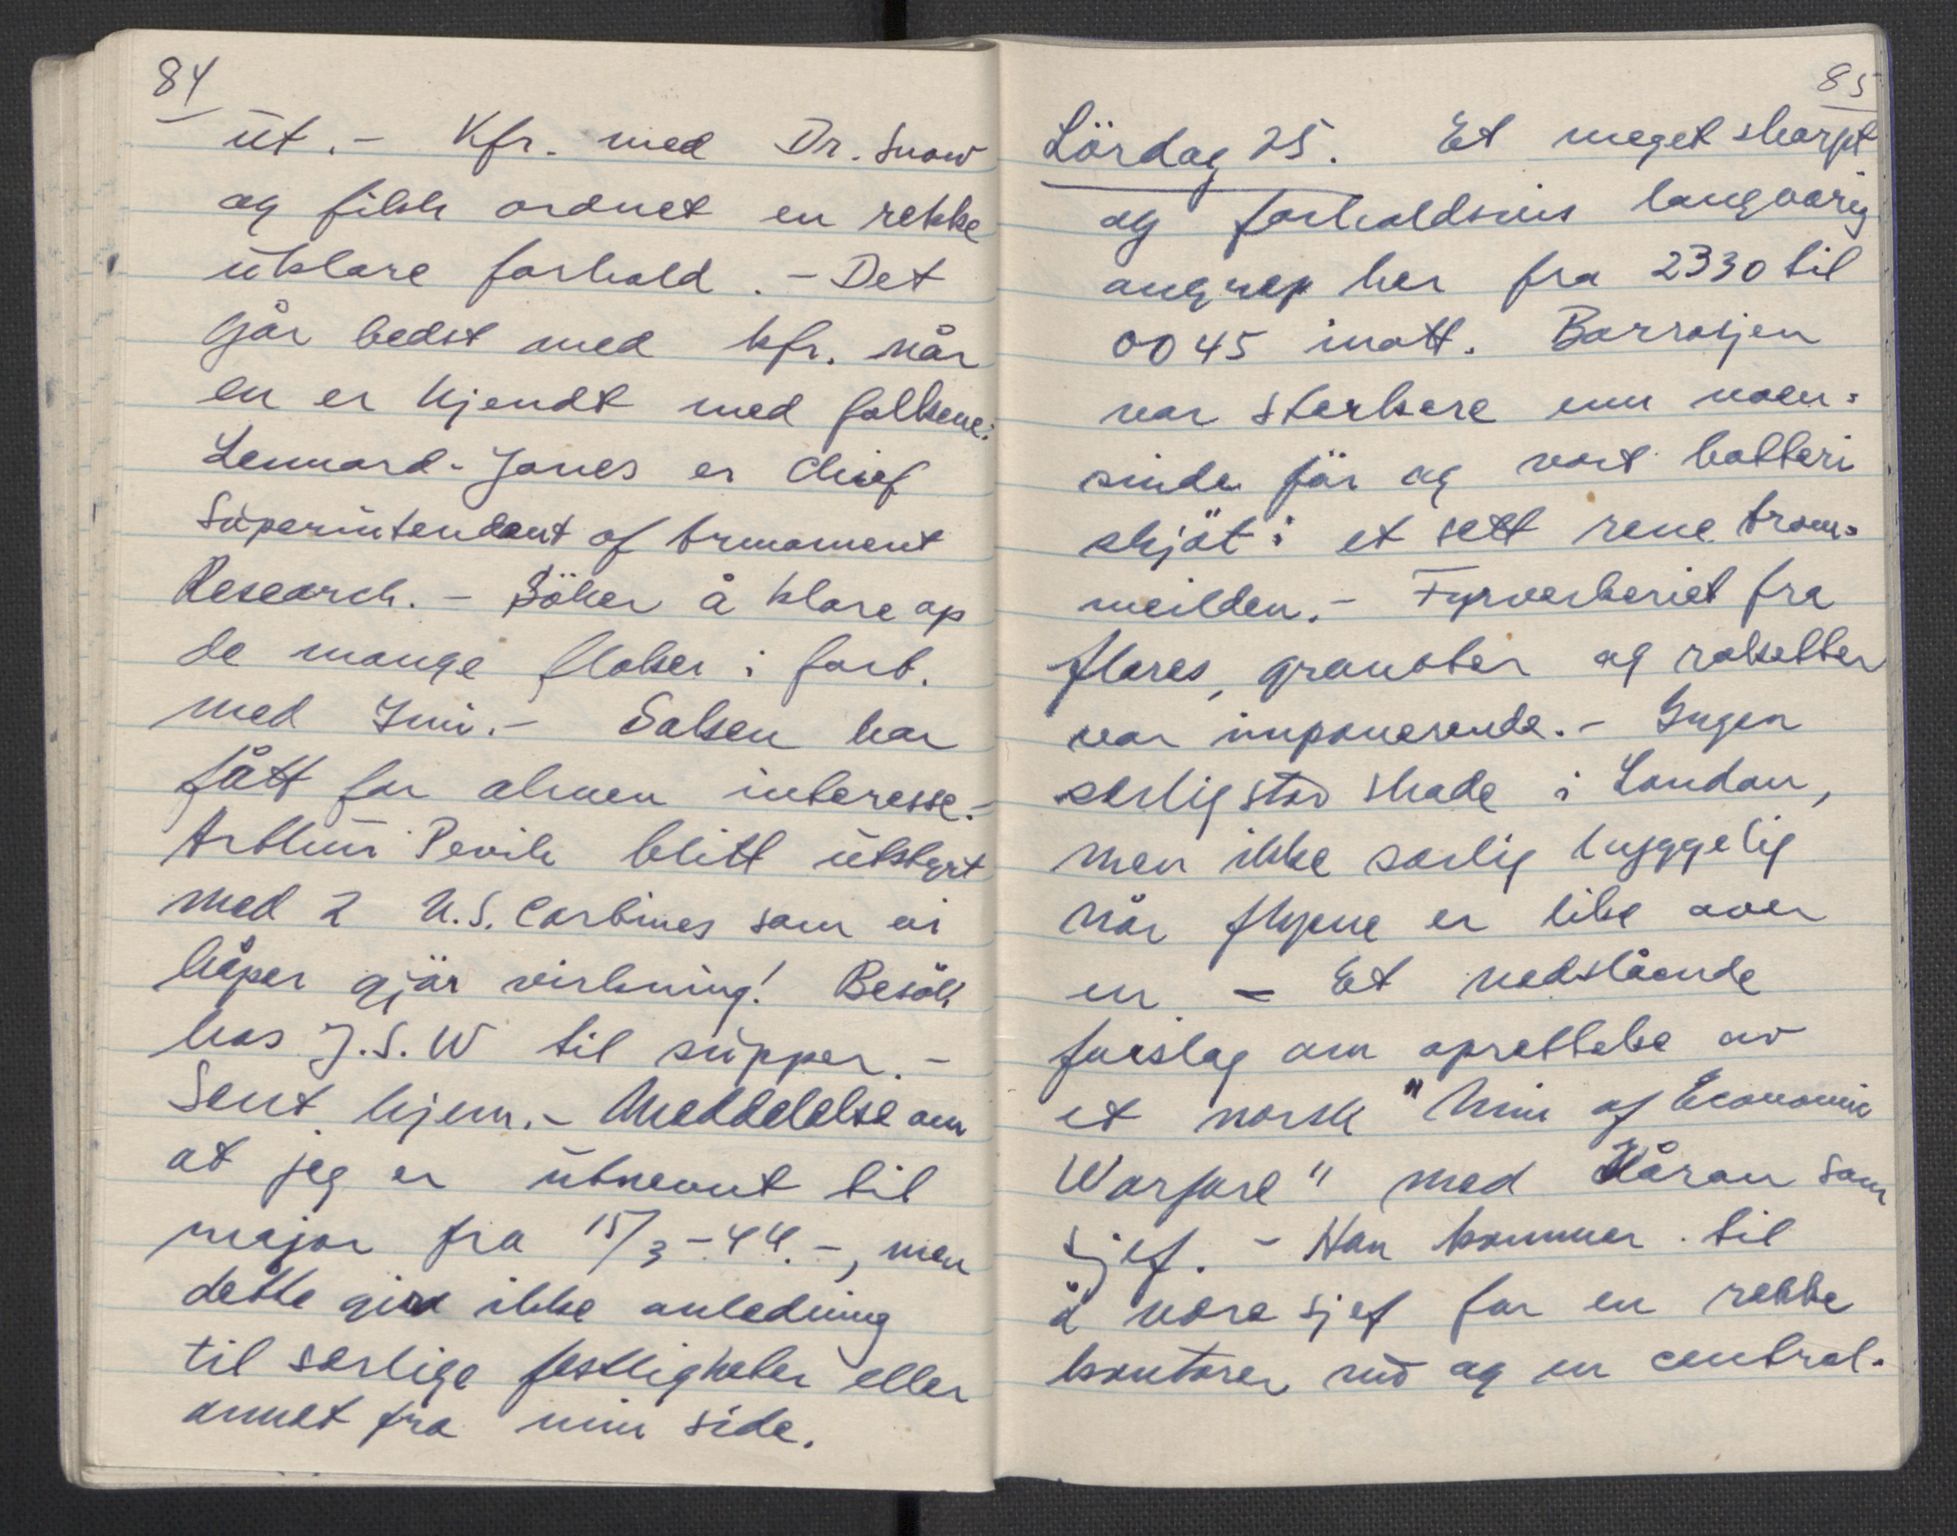 84
ut. - Kfr. med Dr. Snow
og fikk ordnet en rekke
uklare forhold. - Det
går bedst med kfr. når
en er kjendt med folkene:
Lennard-Jones er Chief
Superintendent of Armament
Research. - Söker å klare op
de mange floker i forb.
med Juni. - Salsen har
fått for almen interesse. -
Arthur Pevik blitt utstyrt
med 2 U.S. Carbines som vi
håper gjör virkning! Besök
hos J.S.W til supper. -
Sent hjem. - Meddelelse om
at jeg er utnevnt til
major fra 15/3-44. -, men
dette gir ikke anledning
til særlige festligheter eller
annet fra min side.
85
Lördag 25. Et meget skarpt
og forholdsvis langvarig
angrep her fra 2330 til
0045 inatt. Barrasjen
var sterkere enn noen-
sinde för og vort batteri
skjöt i et sett rene trom-
meilden. - Fyrverkeriet fra
flares, granater og raketter
var imponerende. - Ingen
særlig stor skade i London,
men ikke særlig hyggelig
når flyene er like over
en - Et nedslående
forslag om oprettelse av
et norsk "Min of Economic
Warfare" med Håran som
sjef. - Han kommer til
å være sjef for en rekke
kontorer nu og en central-